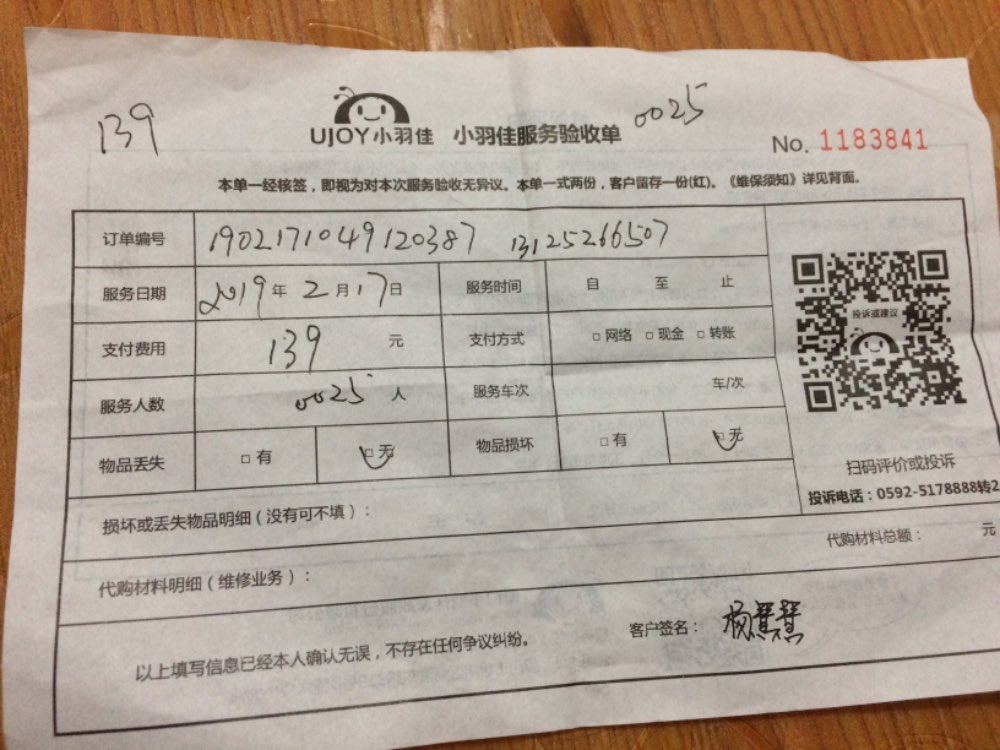 139
UJOY小羽佳 小羽佳服务验收单 0025
No. 1183841
本单一经核签，即视为对本次服务验收无异议。本单一式两份，客户留存一份(红)。《维保须知》详见背面。
订单编号 190217104912 0387 13125266507
服务日期 2019年2月17日 服务时间 自 至 止
支付费用 139 元 支付方式 □ 网络 □ 现金 □ 转账
服务人数 0025 人 服务车次 车/次
物品丢失 □ 有 □ 无 物品损坏 □ 有 □ 无
投诉或建议
扫码评价或投诉
投诉电话：0592-5178888转2
损坏或丢失物品明细（没有可不填）：
代购材料明细（维修业务）： 代购材料总额： 元
以上填写信息已经本人确认无误，不存在任何争议纠纷。 客户签名： 杨慧慧